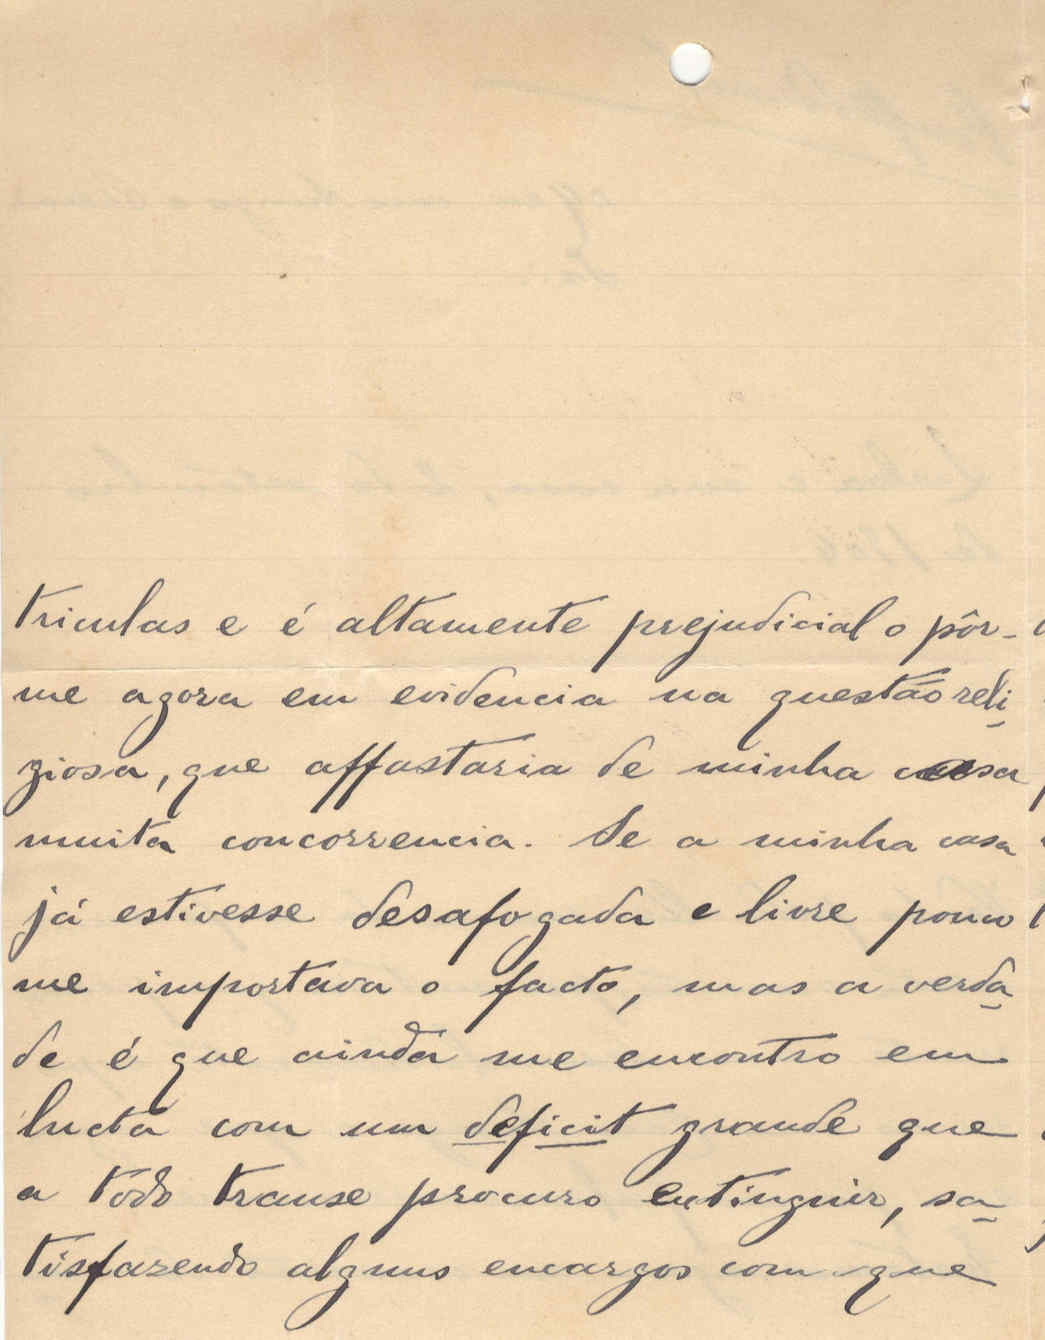 triculas e é altamente prejudicial o pôr-
me agora em evidencia na questão reli-
giosa, que affastaria de minha casa
muita concorrencia. Se a minha casa
já estivesse desafogada e livre pouco
me importava o facto, mas a verda-
de é que ainda me encontro em
lucta com um deficit grande que
a todo transe procuro extinguir, sa-
tisfazendo alguns encargos com que